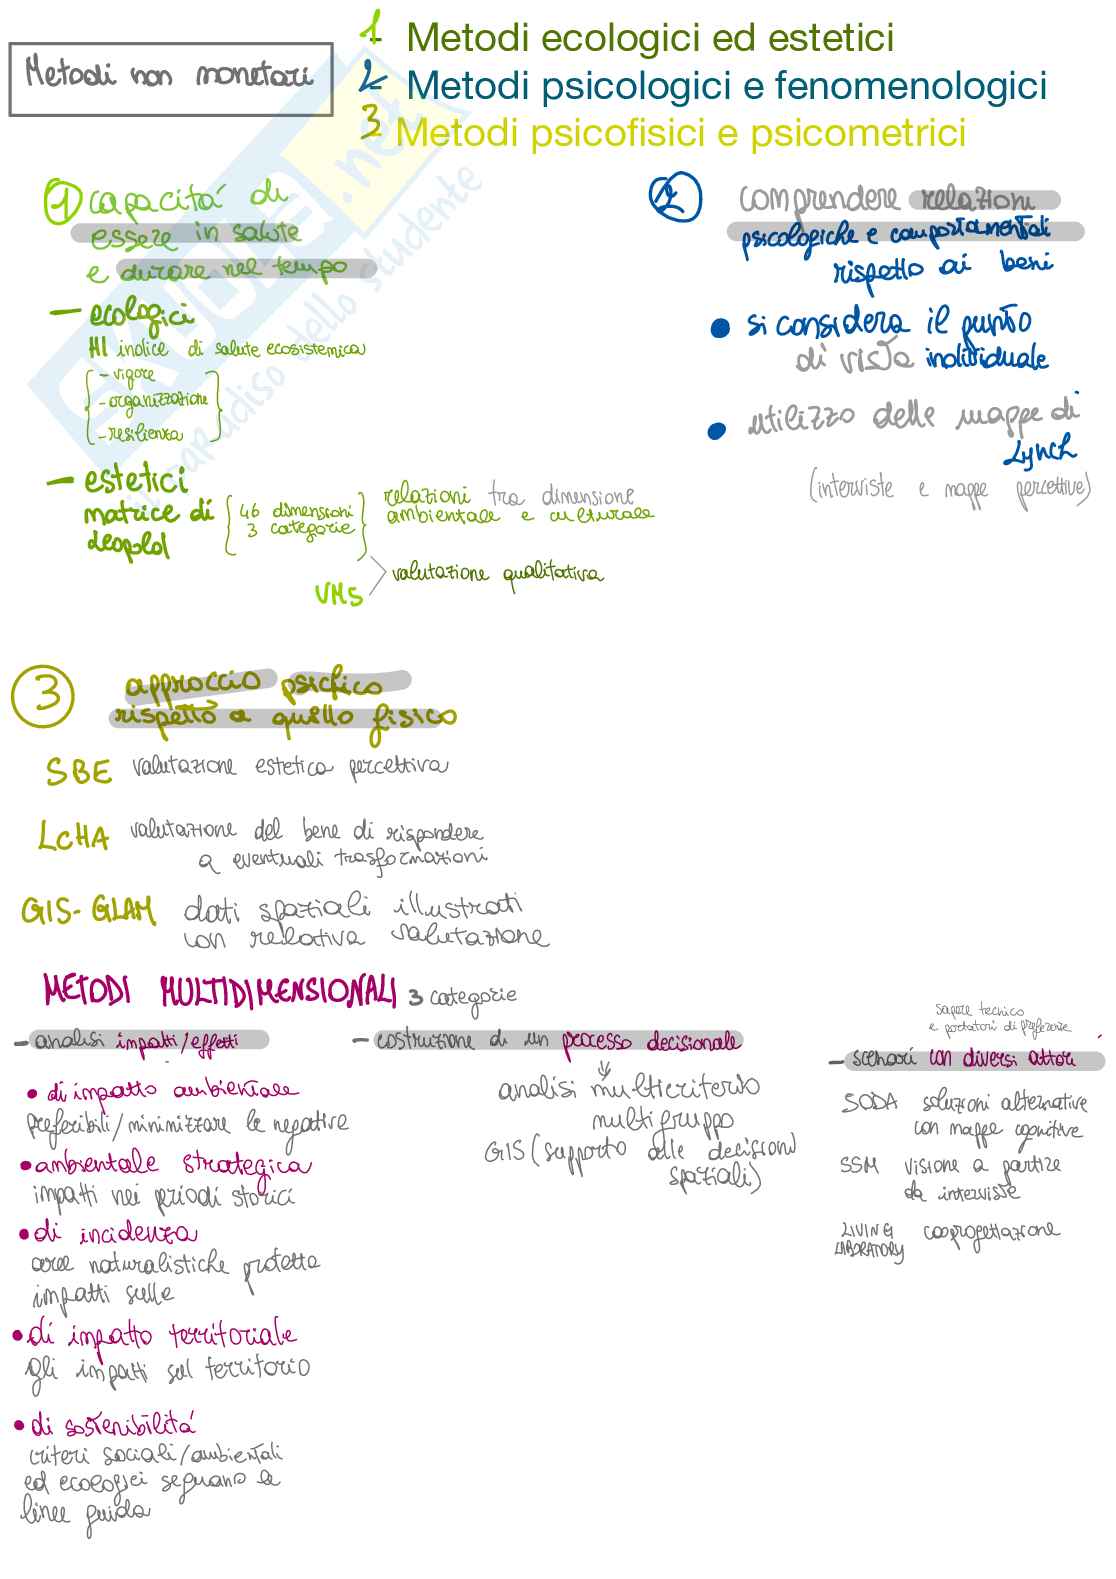 Metodi non monetari
1 - Metodi ecologici ed estetici
2 - Metodi psicologici e fenomenologici
3 Metodi psicofisici e psicometrici
SKUOLA.net
il paradiso dello studente
1 capacitá di
essere in salute
e durare nel tempo
- ecologici
HI indice di salute ecosistemica
- vigore
- organizzazione
- resilienza
- estetici
matrice di
Leopold
46 dimensioni
3 categorie
relazioni tra dimensione
ambientale e culturale
VMS
valutazione qualitativa
2 comprendere relazioni
psicologiche e comportamentali
rispetto ai beni
• si considera il punto
di vista individuale
• utilizzo delle mappe di
Lynch
(interviste e mappe percettive)
3 approccio psichico
rispetto a quello fisico
SBE valutazione estetica percettiva
LCHA valutazione del bene di rispondere
a eventuali trasformazioni
GIS-GLAM dati spaziali illustrati
con relativa valutazione
METODI MULTIDIMENSIONALI 3 categorie
- analisi impatti/effetti
• di impatto ambientale
preferibili/minimizzare le negative
• ambientale strategica
impatti nei periodi storici
• di incidenza
aree naturalistiche protette
impatti sulle
• di impatto territoriale
gli impatti sul territorio
• di sostenibilitá
criteri sociali/ambientali
ed ecologici seguano le
linee guida
- costruzione di un processo decisionale
analisi multicriterio
multigruppo
GIS (supporto alle decisioni
spaziali)
sapere tecnico
e portatori di preferenze
- scenari con diversi attori
SODA soluzioni alternative
con mappe cognitive
SSM visione a partire
da interviste
LIVING
LABORATORY cooprogettazione